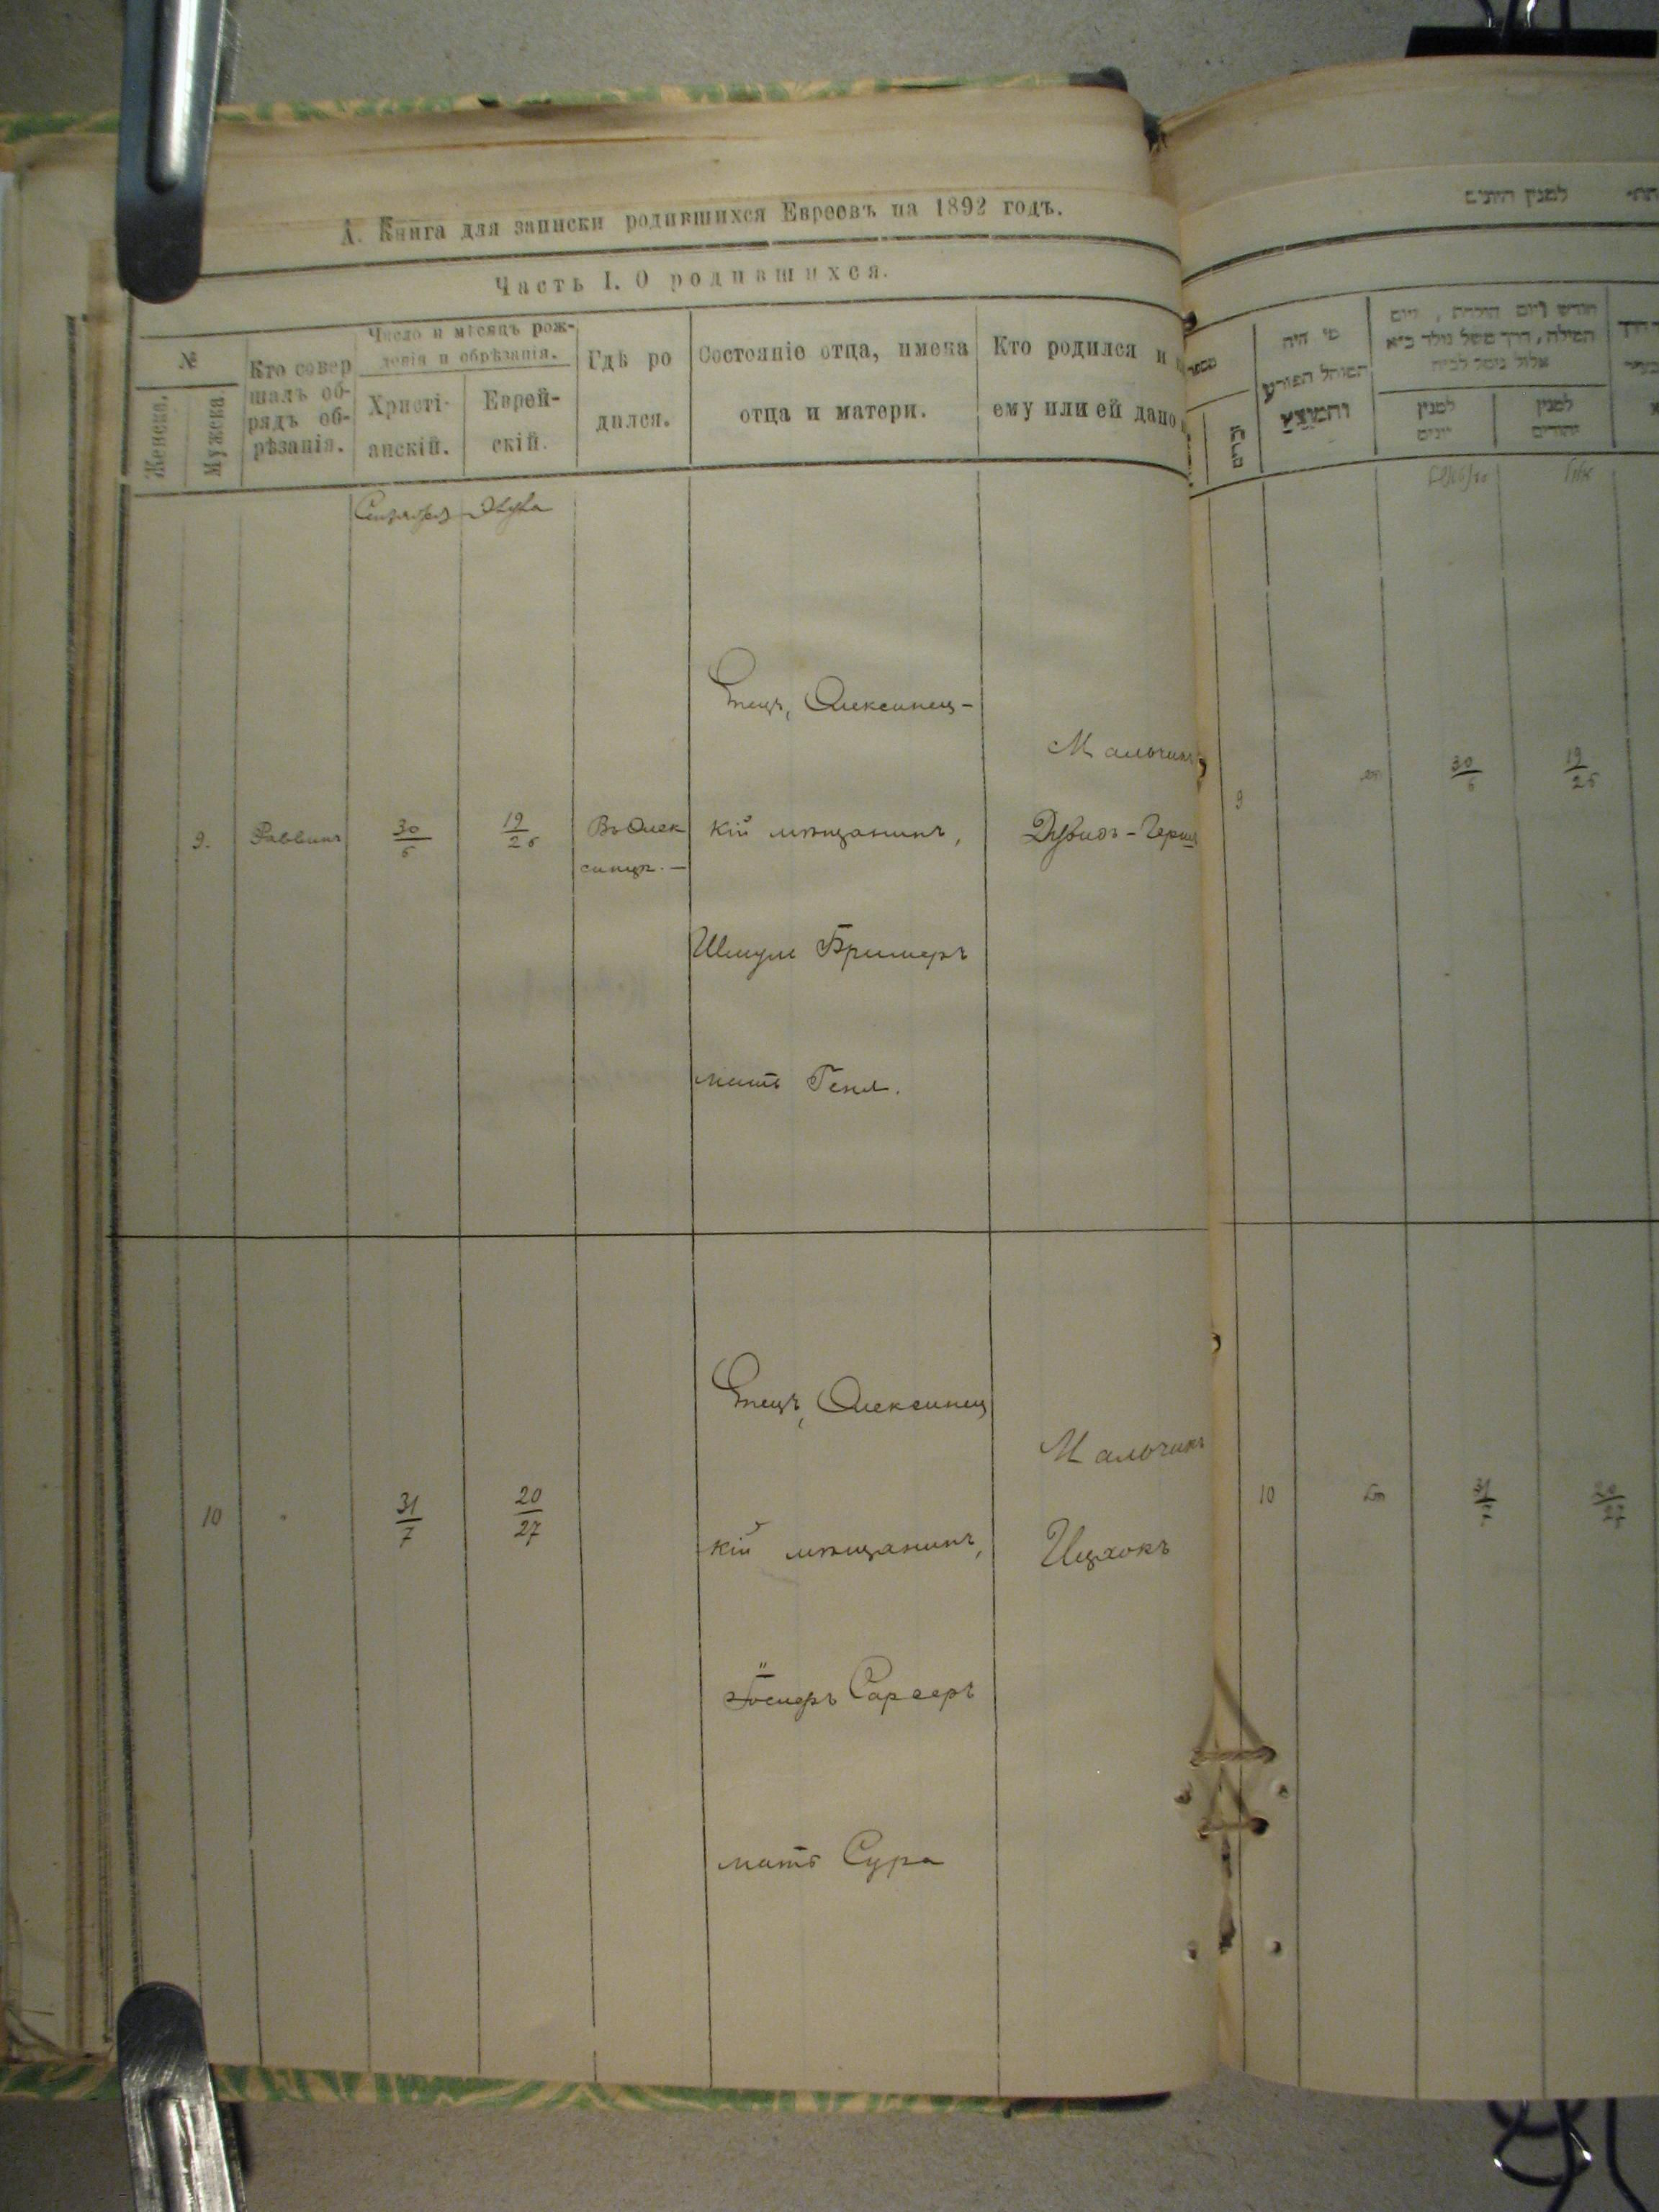 А. Книга для записки родившихся Евреевъ на 1892 годъ.
Часть I. О родившихся.
№
Женска.
Мужска.
Кто совер
шалъ об-
рядъ об-
рѣзанія.
Число и мѣсяцъ рож-
денія и обрѣзанія.
Христі-
анскій.
Еврей-
скій.
Гдѣ ро
дился.
Состояніе отца, имена
отца и матери.
Кто родился и
ему или ей дано
9.
Раввинъ
30
6
19
26
Въ Олек
синцѣ.—
Отецъ, Олексинец-
кій мѣщанинъ,
Шмуль Бримеръ
мать Геня.
Мальчикъ
Дувидъ-Герш
10
31
7
20
27
Отецъ, Олексинец
кій мѣщанинъ,
Сарверъ
мать Сура
Мальчикъ
Ицхокъ
למנין היונים
מי היה
המוהל הפורע
והמוצץ
חודש ויום הולדת, ויום
המילה, דרך משל נולד כ״א
אלול נימול לבית
למנין
יונים
למנין
יהודים
זכרים
9
30
6
19
26
10
31
7
20
27